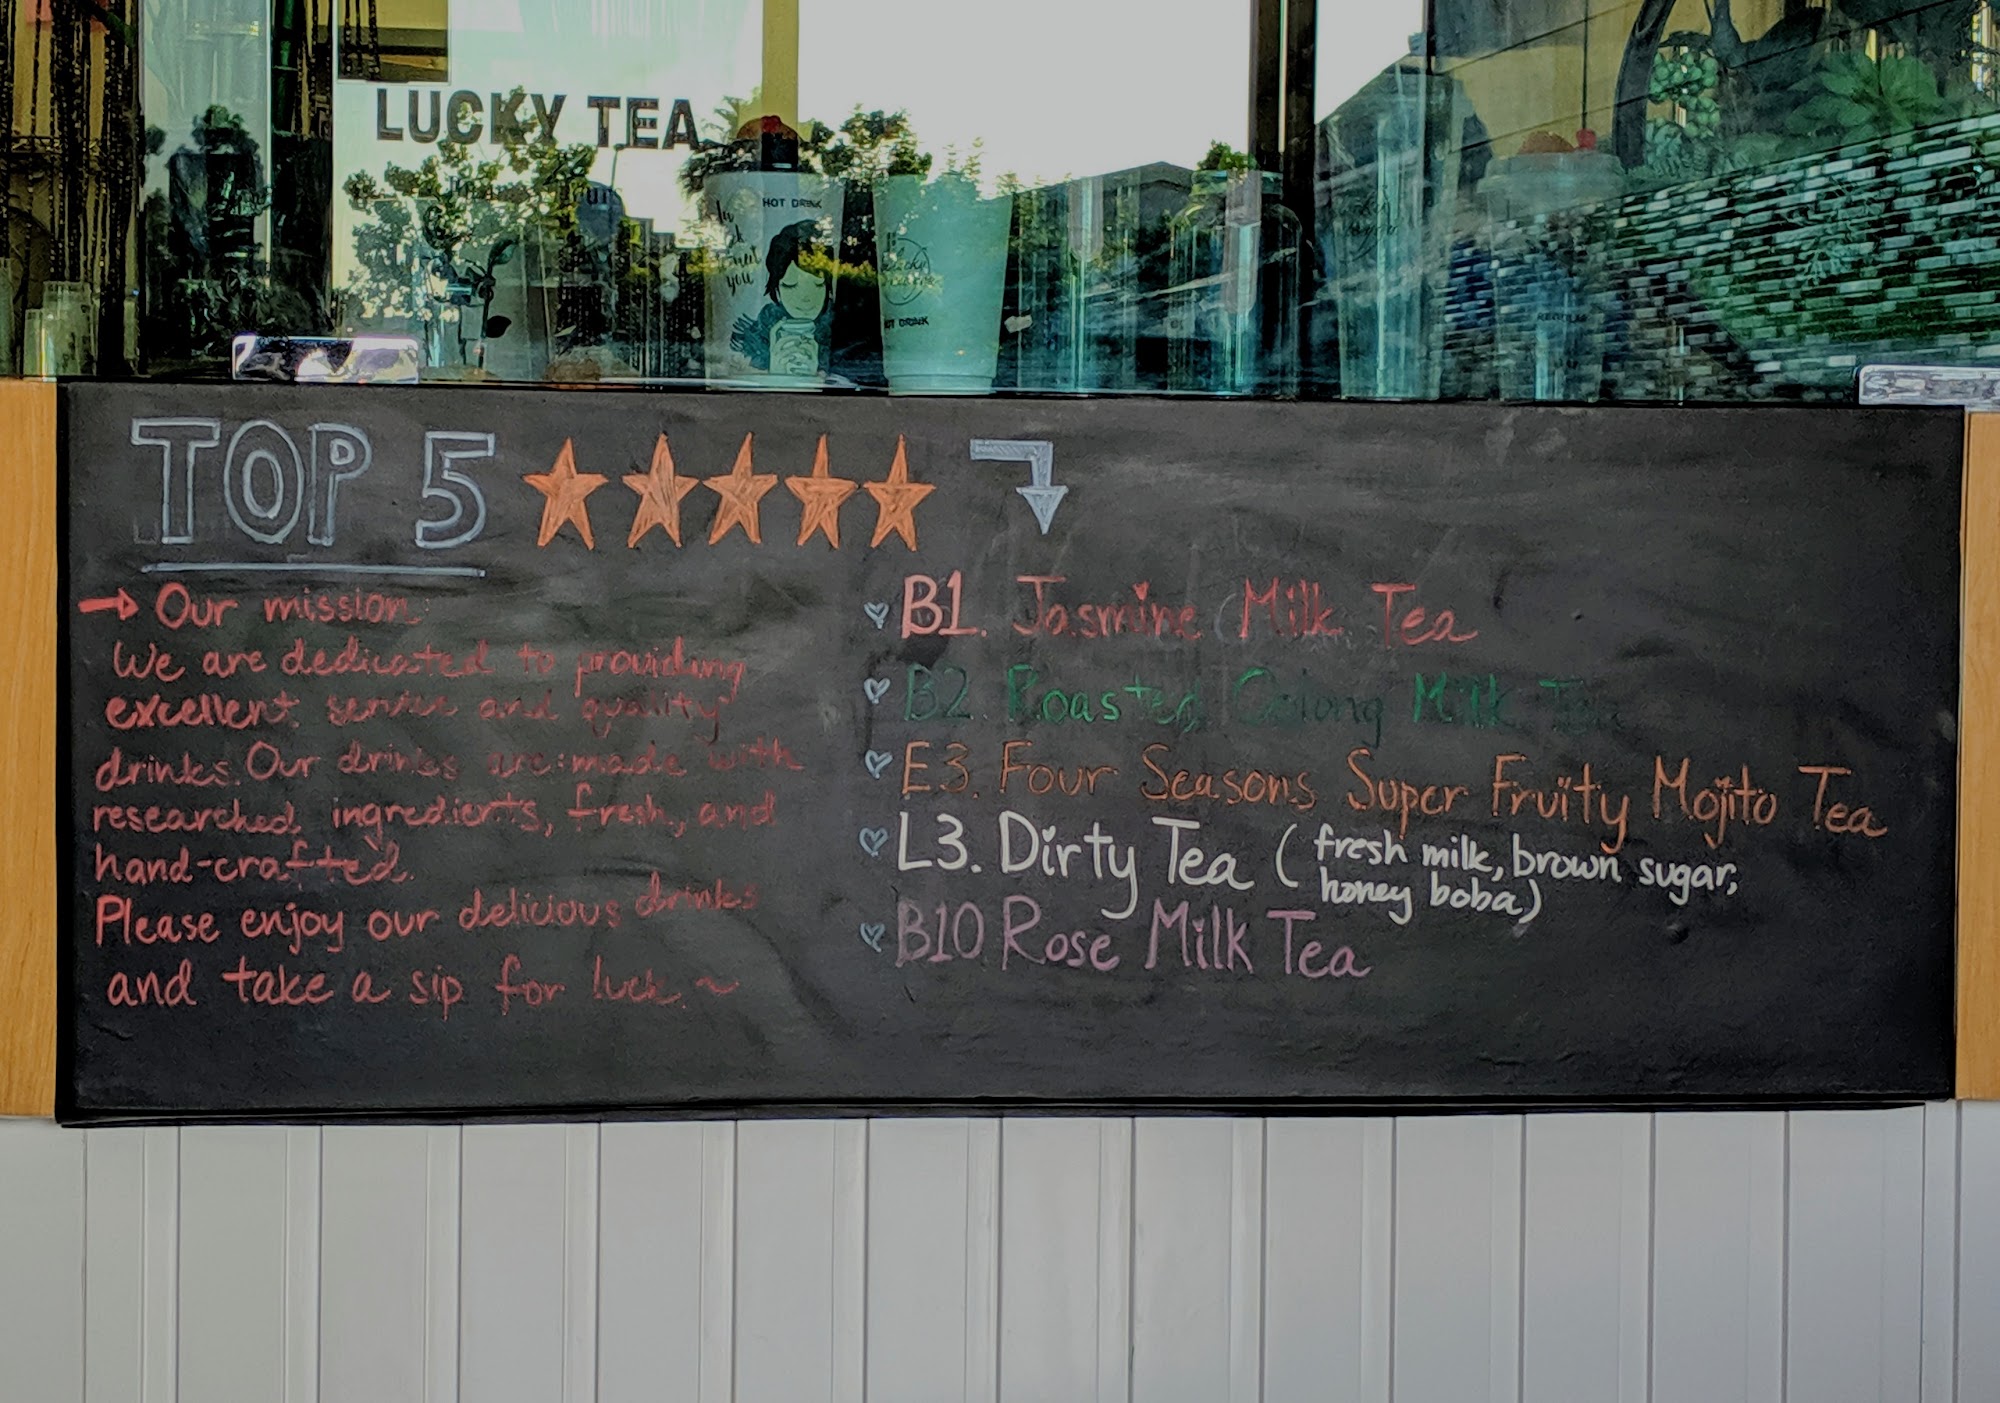 LUCKY TEA
HOT DRINK
meet
you
HOT DRINK
REGULAR
TOP 5
Our mission:
We are dedicated to providing
excellent service and quality
drinks. Our drinks are made with
researched ingredients, fresh, and
hand-crafted.
Please enjoy our delicious drinks
and take a sip for luck.~
B1. Jasmine Milk Tea
B2. Roasted Oolong Milk Tea
E3. Four Seasons Super Fruity Mojito Tea
L3. Dirty Tea (fresh milk, brown sugar,
honey boba)
B10 Rose Milk Tea